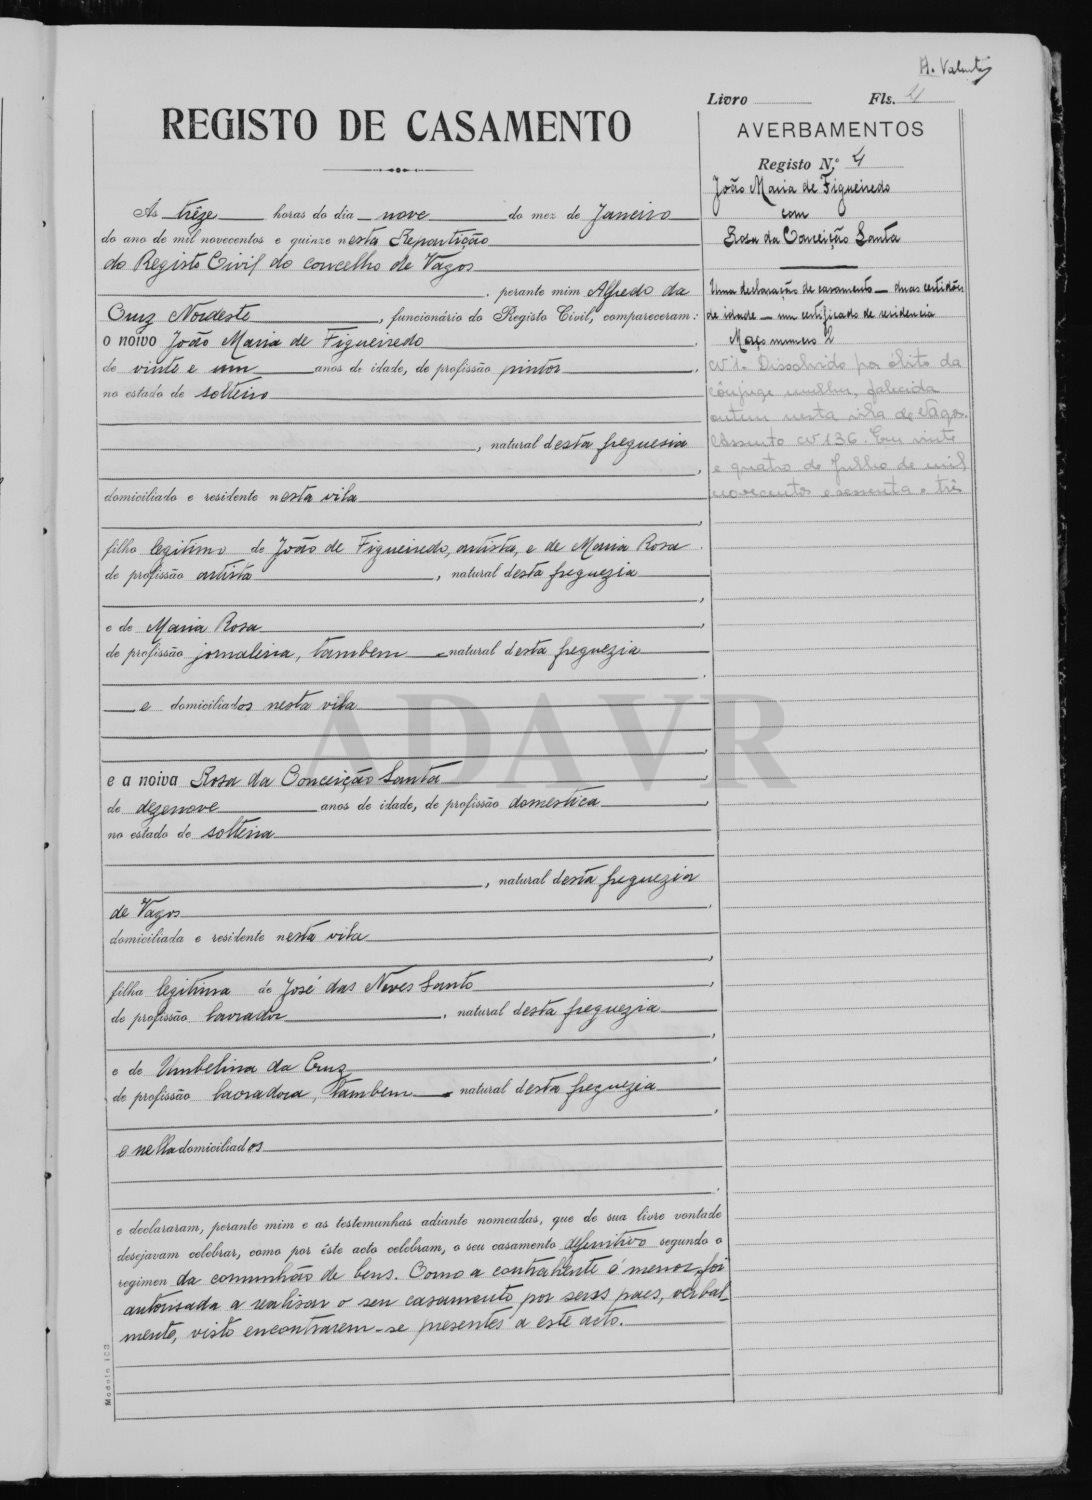 A. Valente
Livro Fls. 4
REGISTO DE CASAMENTO
AVERBAMENTOS
Registo N.º 4
João Maria de Figueiredo
com
Rosa da Conceição Santa
Uma declaração de casamento — duas certidões
de idade — um certificado de residencia
Março numero 2
Nº 1. Dissolvido por óbito da
cônjuge mulher, falecida
ontem nesta vila de Vagos.
Assento nº 136. Em vinte
e quatro de Julho de mil
novecentos e sessenta e três
Ás trêze horas do dia nove do mez de Janeiro
do ano de mil novecentos e quinze nesta Repartição
do Registo Civil do concelho de Vagos
, perante mim Alfredo da
Cruz Nordeste, funcionário do Registo Civil, compareceram:
o noivo João Maria de Figueiredo,
de vinte e um anos de idade, de profissão pintor,
no estado de solteiro
, natural desta freguesia
,
domiciliado e residente nesta vila
,
filho legitimo de João de Figueiredo, artista, e de Maria Rosa
de profissão artista, natural desta freguezia
,
e de Maria Rosa,
de profissão jornaleira, tambem natural desta freguezia
,
e domiciliados nesta vila
,
e a noiva Rosa da Conceição Santa,
de dezenove anos de idade, de profissão domestica,
no estado de solteira
, natural desta freguezia
de Vagos,
domiciliada e residente nesta vila
,
filha legitima de José das Neves Santo,
de profissão lavrador, natural desta freguezia
,
e de Umbelina da Cruz,
de profissão lavradora, tambem natural desta freguezia
,
e nella domiciliados
.
e declararam, perante mim e as testemunhas adiante nomeadas, que de sua livre vontade
desejavam celebrar, como por êste acto celebram, o seu casamento definitivo segundo o
regimen da comunhão de bens. Como a contrahente é menor, foi
autorisada a realisar o seu casamento por seus paes, verbal-
mente, visto encontrarem-se presentes a este acto.
Modelo 103
ADAVR